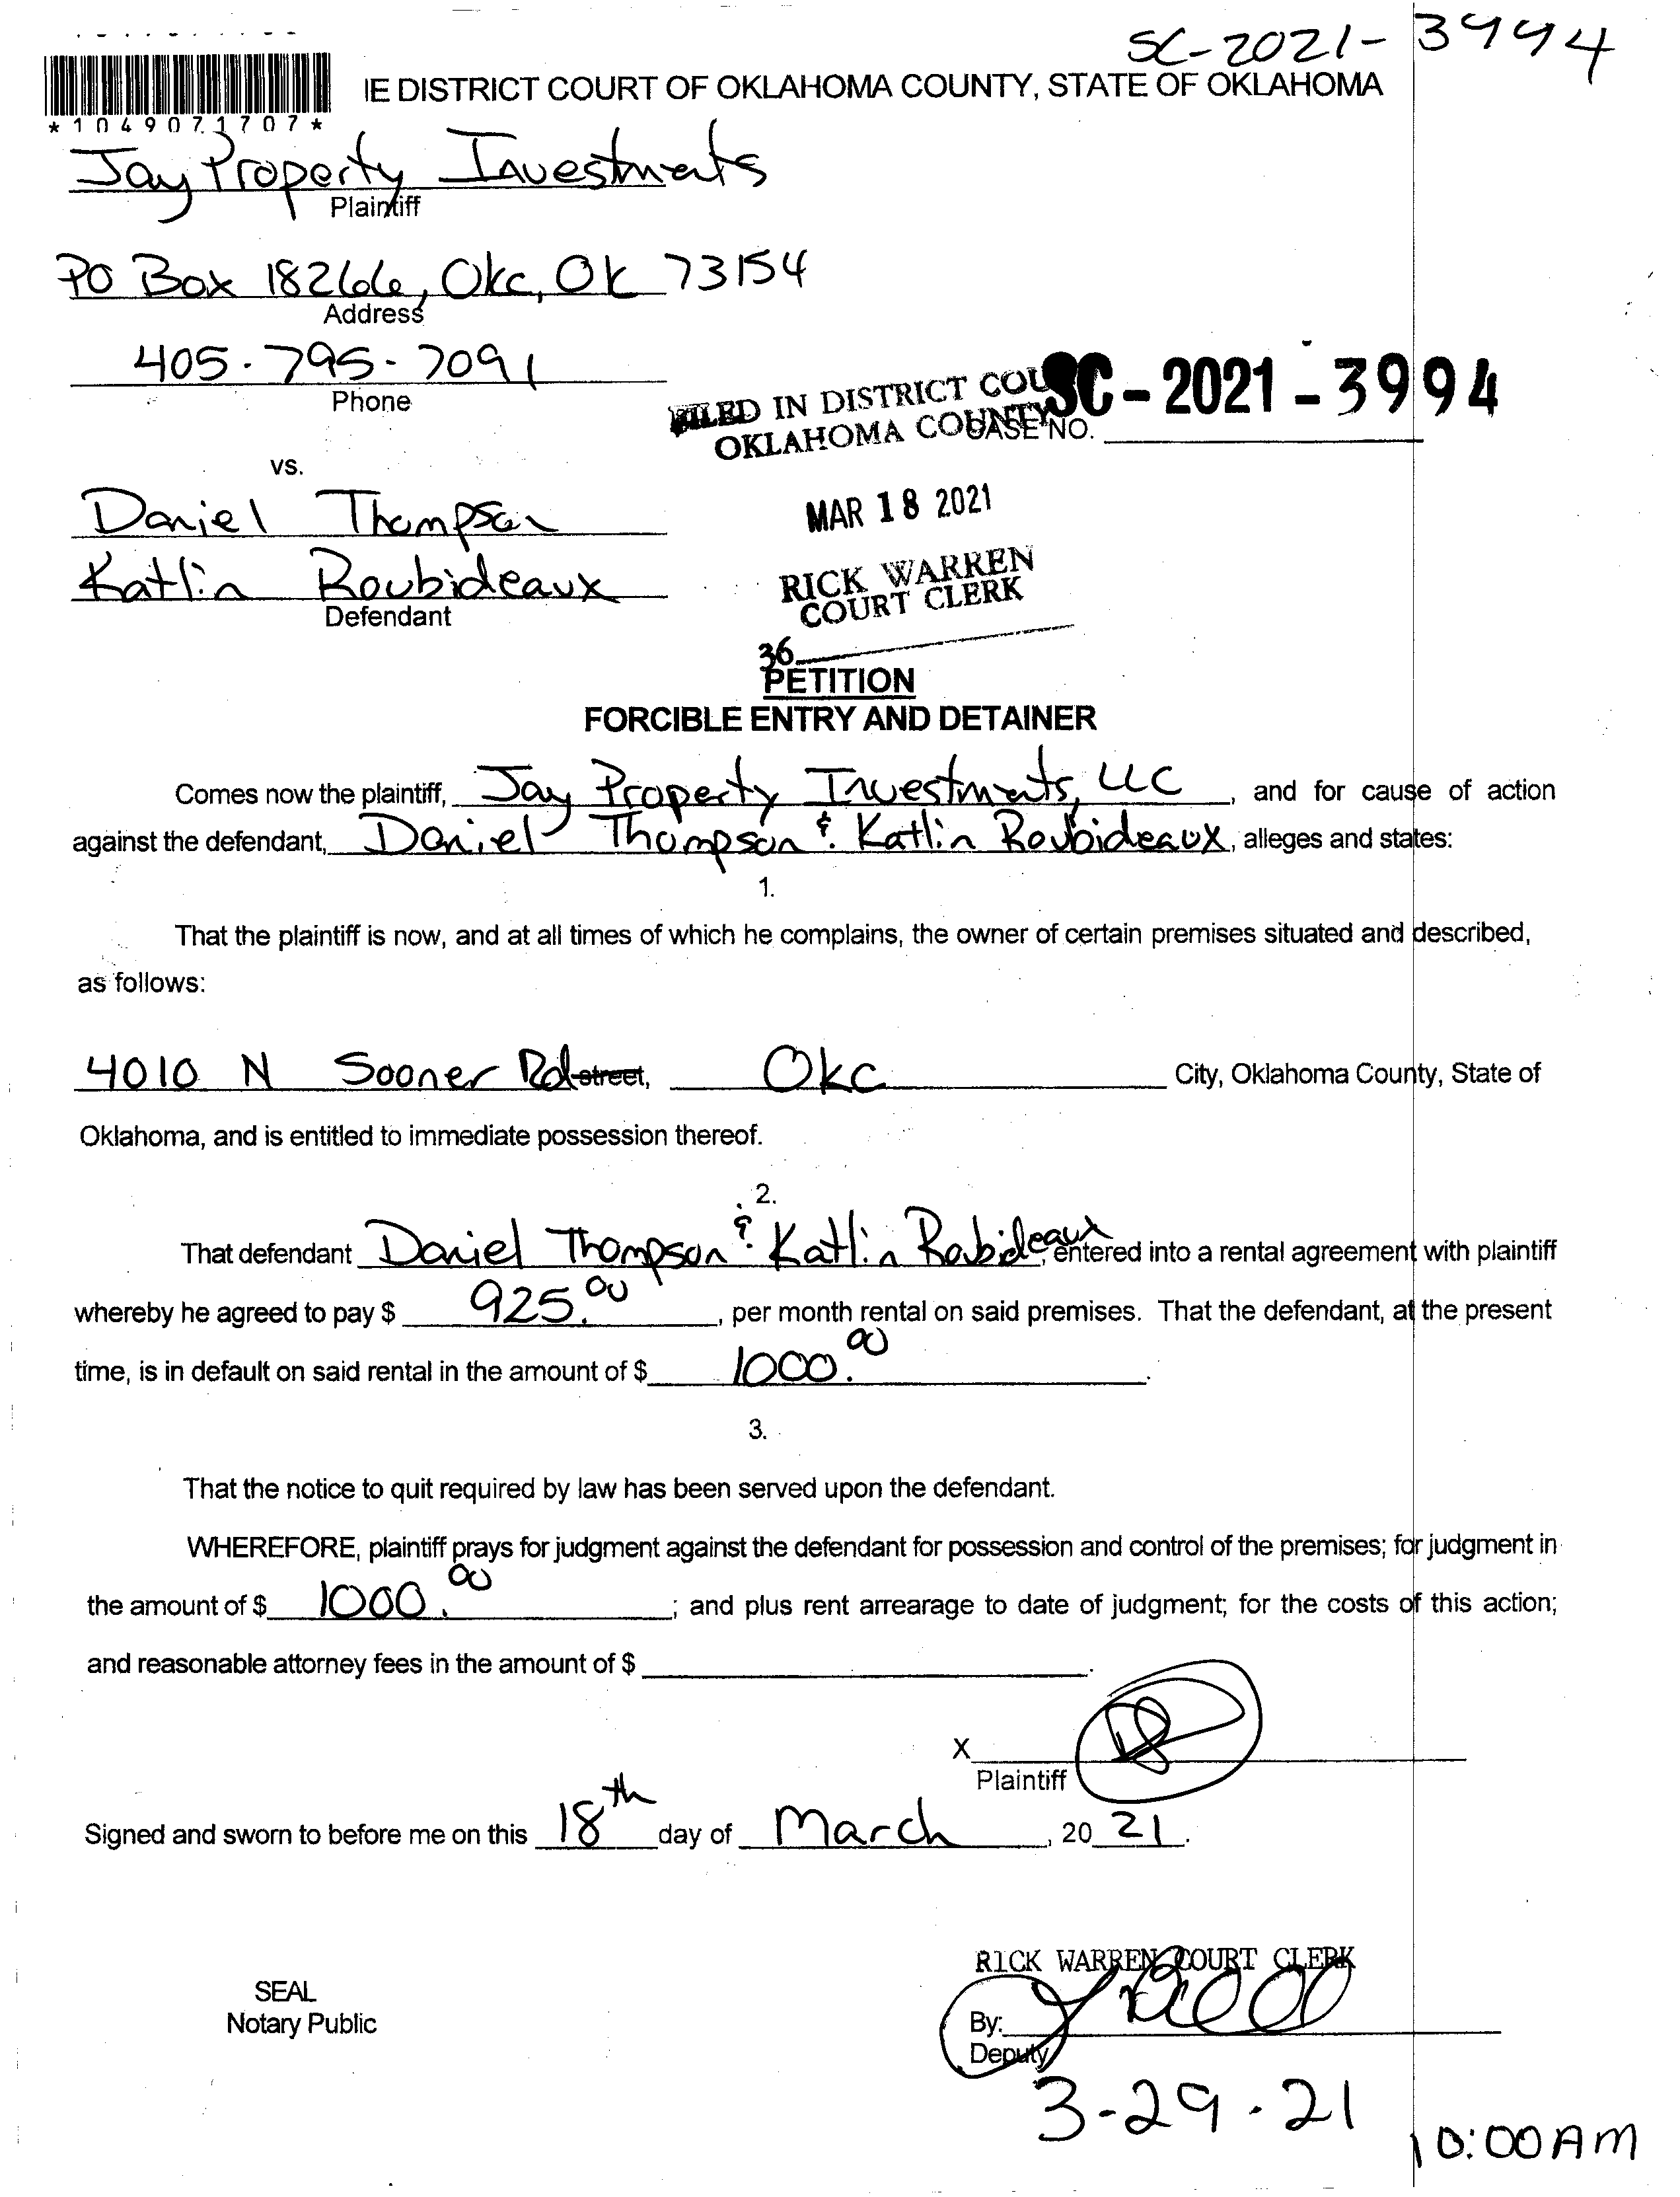 SC-2021-3994
*1049071707*
IE DISTRICT COURT OF OKLAHOMA COUNTY, STATE OF OKLAHOMA
Jay Property Investments
Plaintiff
PO Box 18266, Okc, Ok 73154
Address
405-795-7091
Phone
FILED IN DISTRICT COU
OKLAHOMA COUNTY
SC-2021-3994
CASE NO.
vs.
MAR 18 2021
Daniel Thompson
Katlin Roubideaux
Defendant
RICK WARREN
COURT CLERK
36
PETITION
FORCIBLE ENTRY AND DETAINER
Comes now the plaintiff, Jay Property Investments, LLC, and for cause of action
against the defendant, Daniel Thompson & Katlin Roubideaux, alleges and states:
1.
That the plaintiff is now, and at all times of which he complains, the owner of certain premises situated and described,
as follows:
4010 N Sooner Rd street, Okc City, Oklahoma County, State of
Oklahoma, and is entitled to immediate possession thereof.
2.
That defendant Daniel Thompson & Katlin Robideaux, entered into a rental agreement with plaintiff
whereby he agreed to pay $ 925.00, per month rental on said premises. That the defendant, at the present
time, is in default on said rental in the amount of $ 1000.00.
3.
That the notice to quit required by law has been served upon the defendant.
WHEREFORE, plaintiff prays for judgment against the defendant for possession and control of the premises; for judgment in
the amount of $ 1000.00; and plus rent arrearage to date of judgment; for the costs of this action;
and reasonable attorney fees in the amount of $
X
Plaintiff
Signed and sworn to before me on this 18th day of March, 20 21.
RICK WARREN COURT CLERK
SEAL
Notary Public
By:
Deputy
3-29-21
10:00AM